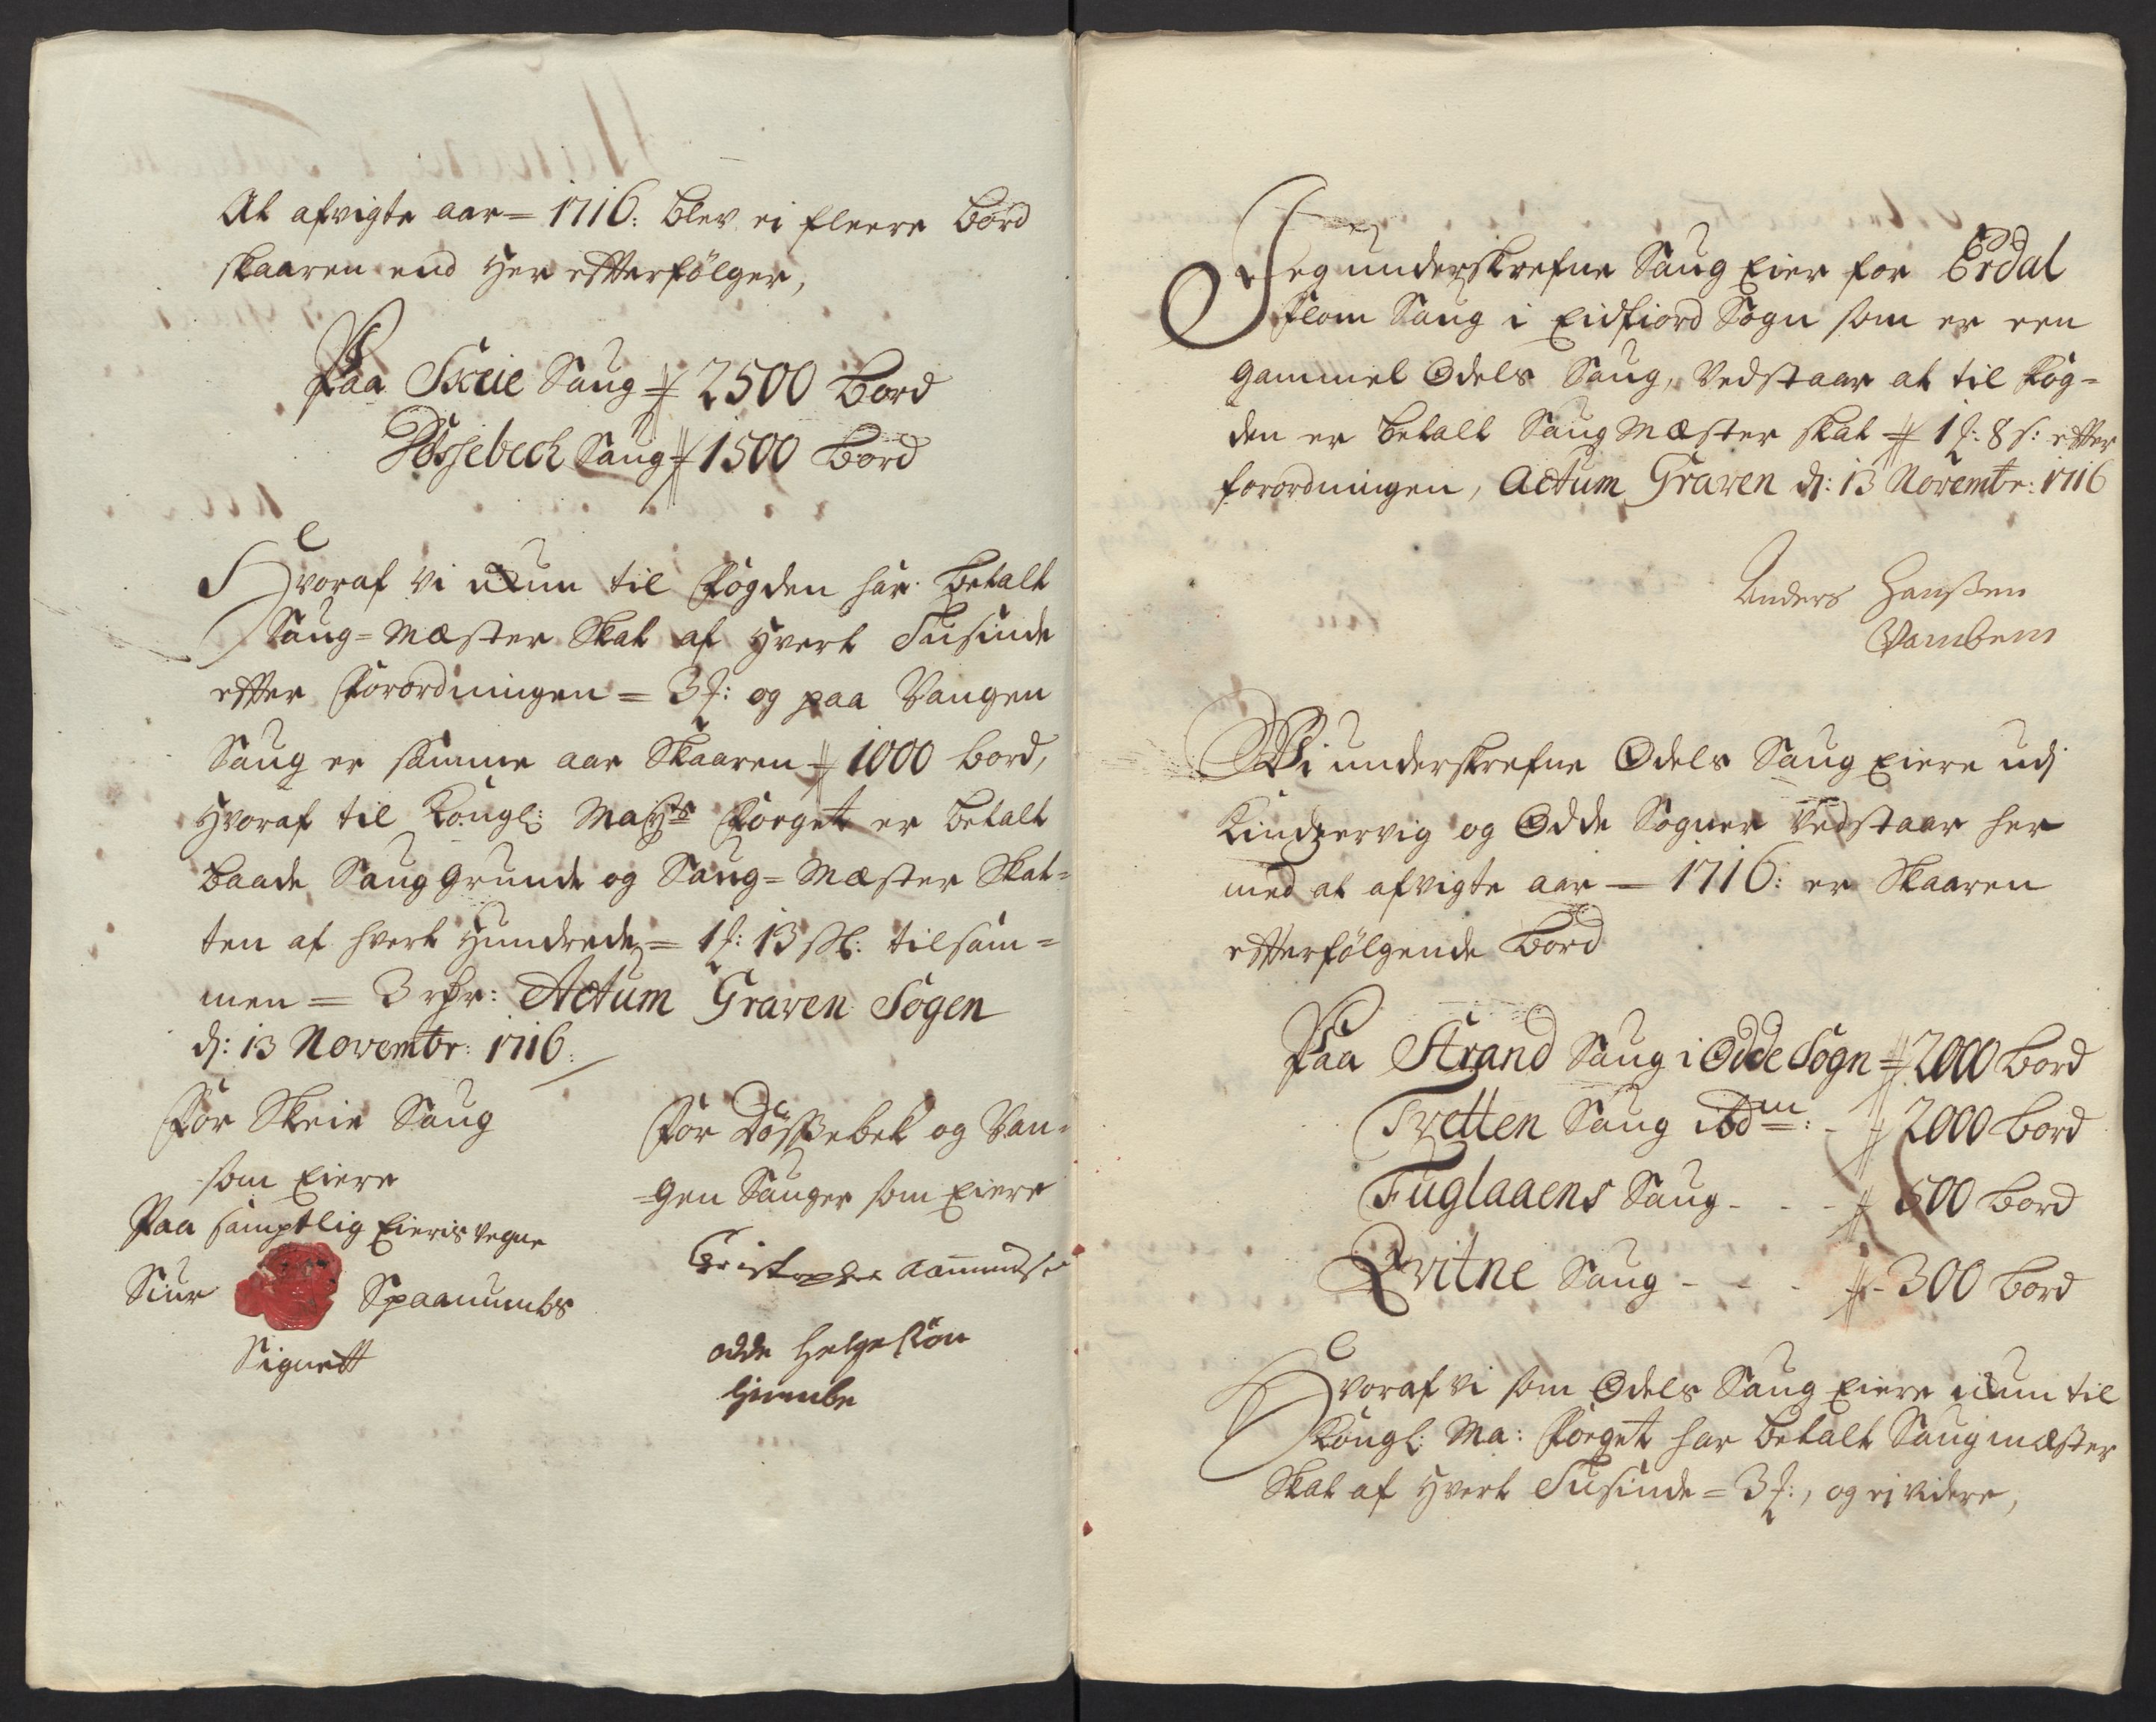 At afvigte aar = 1716: blev ei fleere bord
skaaren end her effterfölger,
Paa Skeie Saug 2500 bord
Dössebech Saug 1500 bord
Hvoraf vi nun til Fogden har betalt
Saug=Mæster Skat af hvert Tusinde
effter Forordningen = 3 : og paa Vangen
Saug er samme aar Skaaren 1000 bord,
hvoraf til Kongl: Mayts Forget er betalt
baade Saug grunde og Saug=Mæster Skat=
ten af hvert hundrede = 1 : 13 sk: tilsam=
men = 3 rdr: Actum Graven Sogen
d: 13 Novembr: 1716.
For Skeie Saug
som Eiere
Paa samptlig Eieris vegne
Siur Spaanumbs
Signett
For Dössebek og Van=
=gen Sauger som Eiere
Christopher Aamundse
odde Helgesön
Hiembe
Jeg underskrefne Saug Eier for Erdal
Flom Saug i Eidfiord Sogn som er een
gammel Odels Saug, Vedstaar at til Fog=
den er betalt Saug Mæster skat 1 : 8 s: effter
forordningen, Actum Graven d: 13 Novembr: 1716
Anders Hanssen
Wambem
Wi underskrefne Odels Saug Eiere udj
Kindzervig og Odde Sogner Vedstaar her
med at afvigte aar = 1716: er Skaaren
effterfölgende bord
Paa Strand Saug i Odde Sogn 2000 bord
Tvetten Saug ibdm: - 2000 bord
Fuglaaens Saug - - - 500 bord
Qvitne Saug - - - 300 bord
Hvoraf vi som Odels Saug Eiere nun til
Kongl: Ma: Forget har betalt Saugmæster
Skat af hvert Tusinde = 3 :, og ei videre,